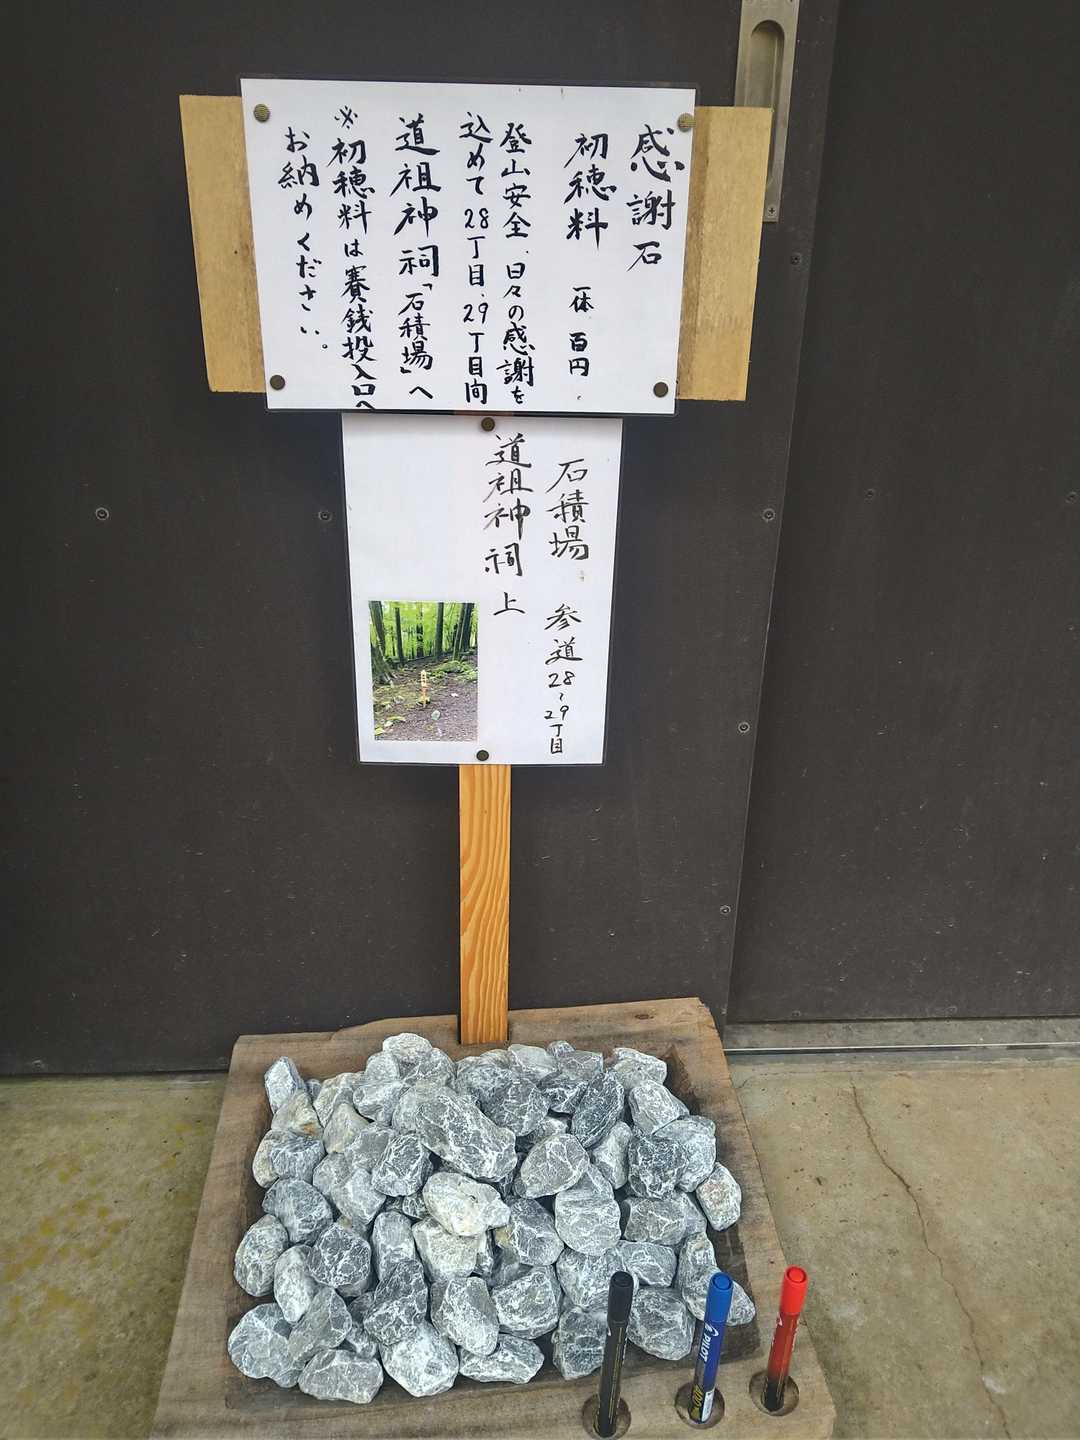 感謝石
初穂料 一体 百円
登山安全、日々の感謝を
込めて28丁目、29丁目間
道祖神祠「石積場」へ
※初穂料は賽銭投入口へ
お納めください。
石積場 参道28〜29丁目
道祖神祠上
PILOT